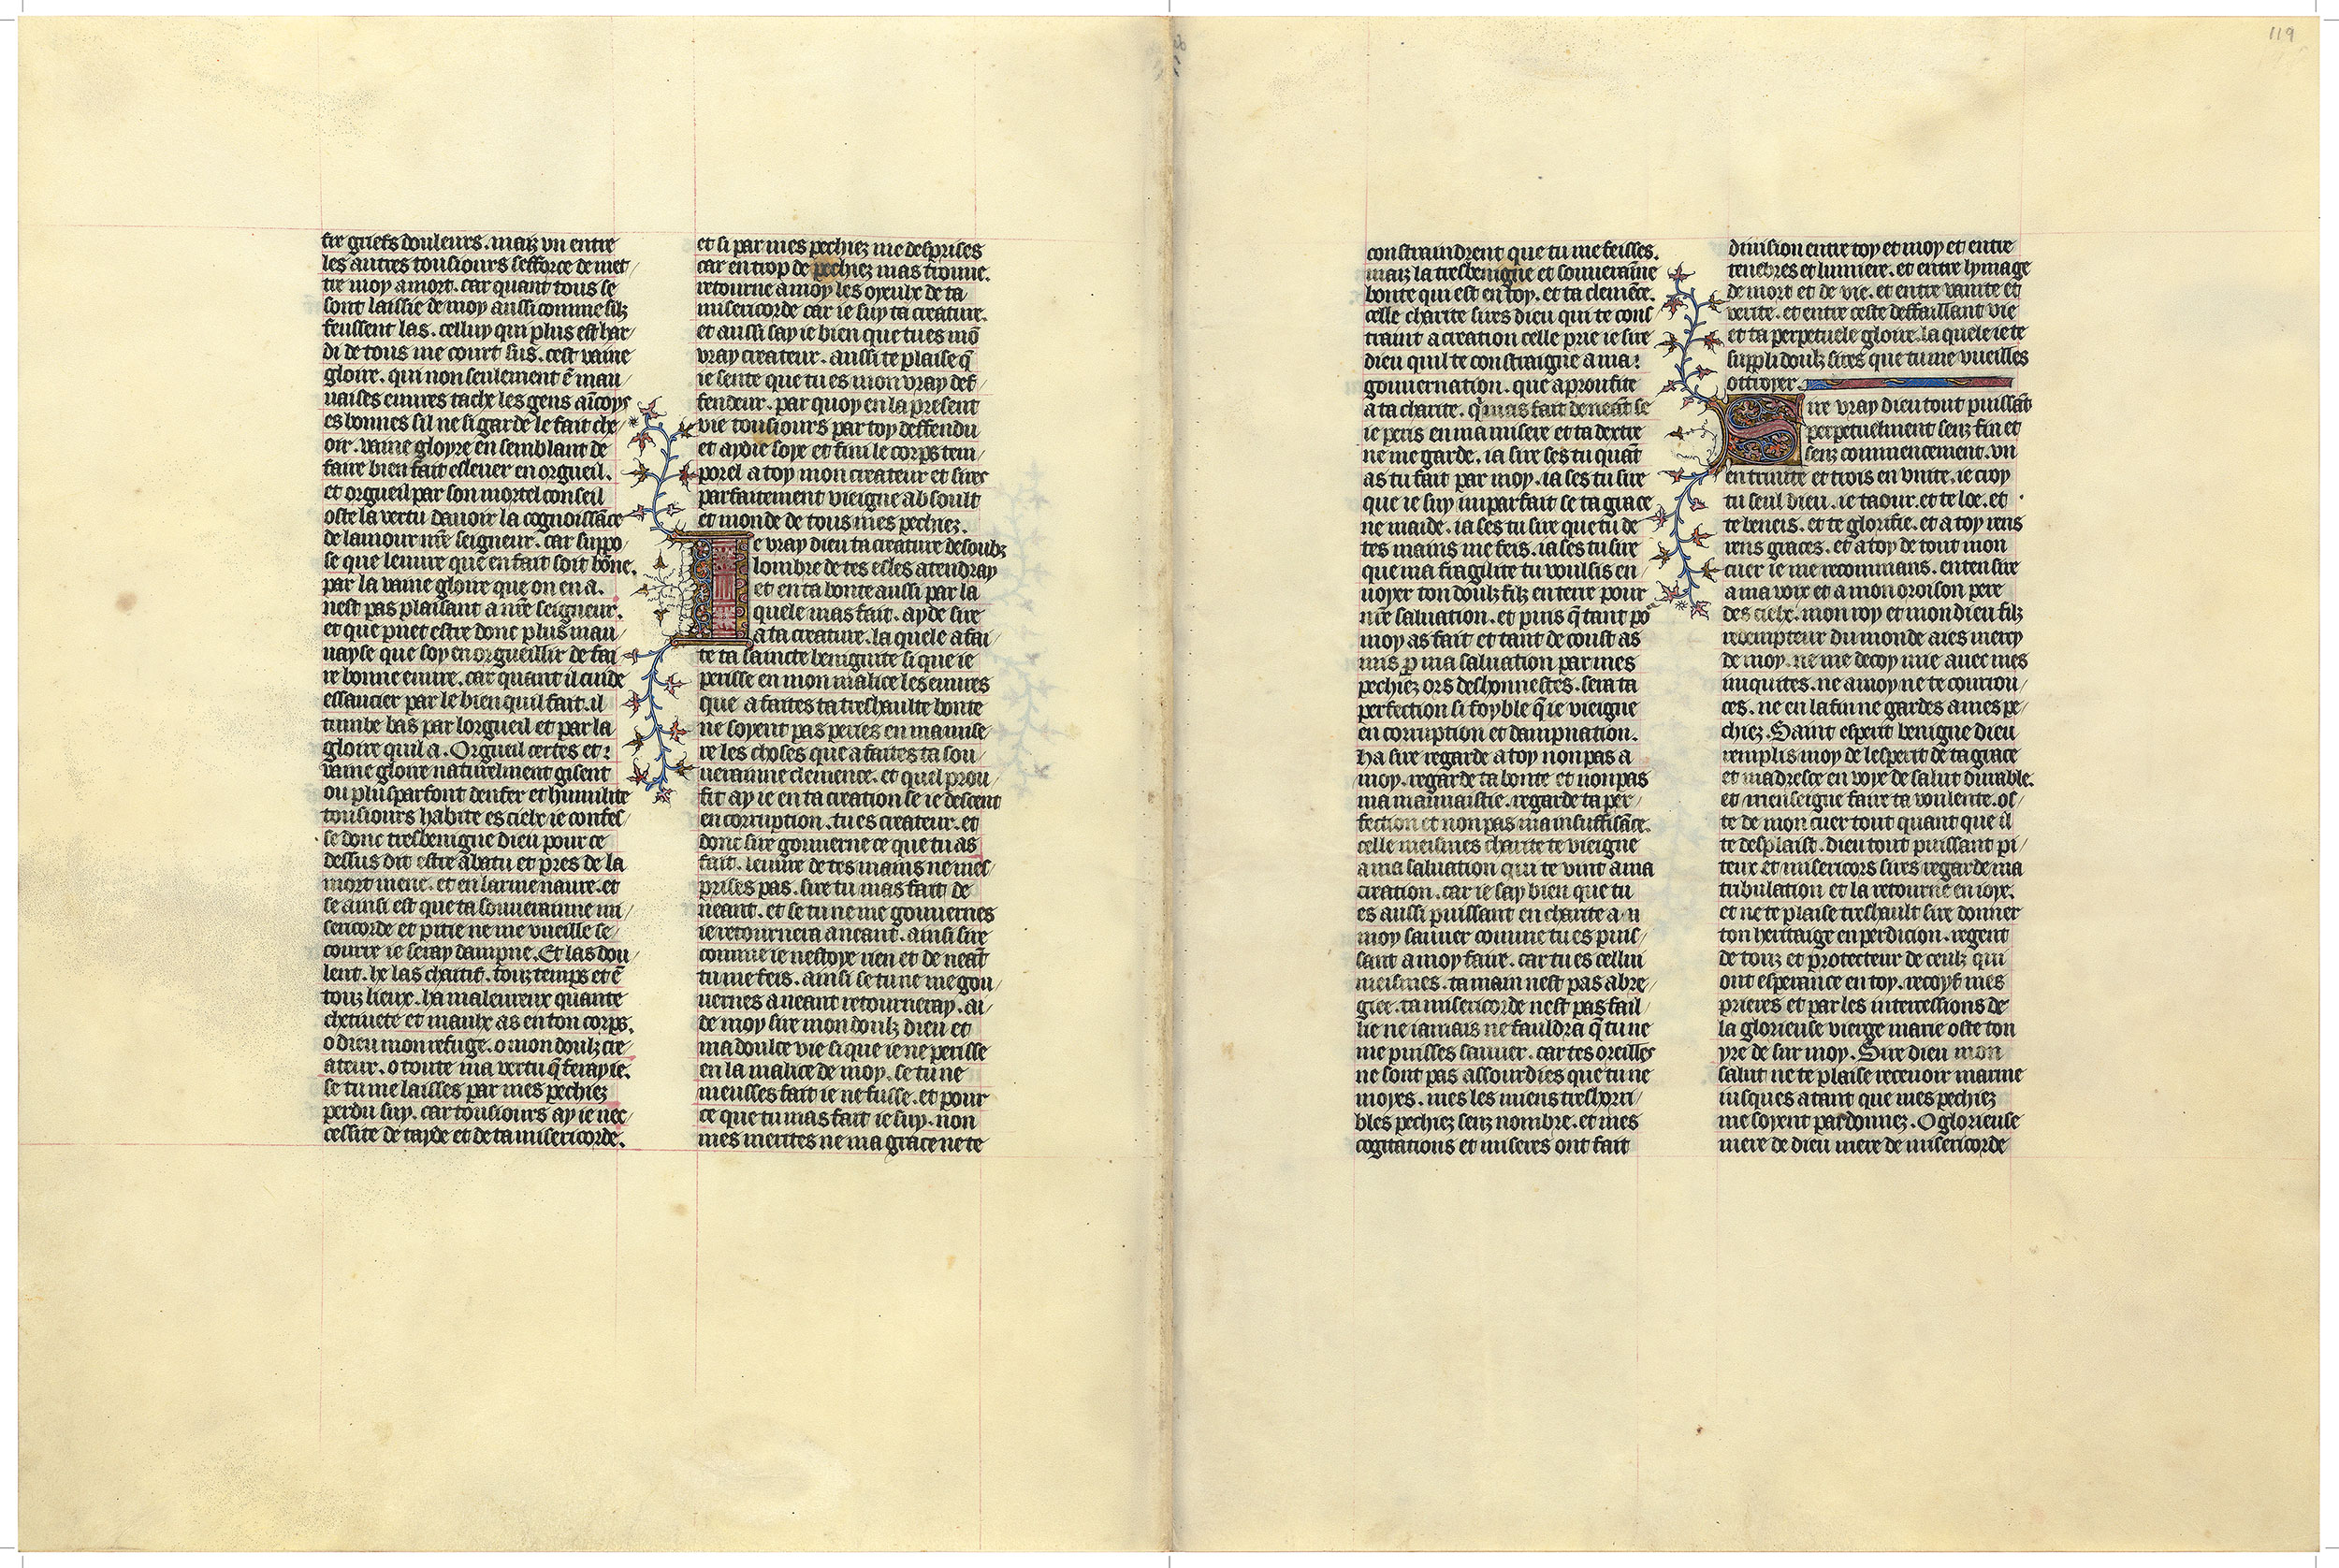 119
frir griefs douleurs . maiz vn entre
les autres tousiours sefforce de met/
tre moy a mort . car quant tous se
sont laissie de moy aussi comme silz
feussent las . celluy qui plus est har/
di de tous me court sus . cest vaine
gloire . qui non seulement ē mau/
uaises euures tache les gens aīcoys
es bonnes sil ne si garde le fait che/
oir . vaine gloyre en semblant de
faire bien fait esleuer en orgueil .
et orgueil par son mortel conseil
oste la vertu dauoir la cognoissāce
de lamour nr̄e seigneur . car suppo/
se que leuure que en fait soit bōne .
par la vaine gloire que on en a .
nest pas plaisant a nr̄e seigneur .
et que puet estre donc plus mau/
uayse que soy enorgueillir de fai/
re bonne euure . car quant il cuide
essaucier par le bien quil fait . il
tumbe bas par lorgueil et par la
gloire quil a . Orgueil certes et
vaine gloire naturelment gisent
ou plus parfont denfer et humilite
tousiours habite es cielx ie confes/
se donc tresbenigne dieu pour ce
dessus dit estre abatu et pres de la
mort mene . et en larme naure . et
se ainsi est que ta souueraine mi/
sericorde et pitie ne me vueille se/
courre ie seray dampne . Et las dou/
lent . he las chaitif . touz temps et ē
touz lieux . ha maleureux quante
chetiuete et maulx as en ton corps .
o dieu mon refuge . o mon doulz cre/
ateur . o toute ma vertu q̄ feray ie .
se tu me laisses par mes pechiez
perdu suy . car tousiours ay ie nec/
cessite de tayde et de ta misericorde .
et si par mes pechiez me desprises
car en trop de pechiez mas trouue .
retourne a moy les oyeulx de ta
misericorde car ie suy ta creature .
et aussi say ie bien que tu es mō
vray createur . aussi te plaise q̄
ie sente que tu es mon vray def/
fendeur . par quoy en la present
vie tousiours par toy deffendu
et aydie soye et fini le corps tem/
porel a toy mon createur et sires
parfaitement vieigne absoult
et monde de tous mes pechiez .
Ie vray dieu ta creature desoubz
lombre de tes esles atendray
et en ta bonte aussi par la
quele mas fait . ayde sire
a ta creature . la quele a fai/
te ta saincte benignite si que ie
perisse en mon malice les euures
que a faites ta treshaulte bonte
ne soyent pas peries en ma mise/
re les choses que a faites ta sou/
ueraine clemence . et quel prou/
fit ay ie en ta creation se ie descent
en corruption . tu es createur . et
donc sire gouuerne ce que tu as
fait . leuure de tes mains ne mes/
prises pas . sire tu mas fait de
neant . et se tu ne me gouuernes
ie retournera a neant . ainsi sire
comme ie nestoye rien et de neāt
tu me feis . ainsi se tu ne me gou/
uernes a neant retourneray . ai/
de moy sire mon doulz dieu et
ma doulce vie si que ie ne perisse
en la malice de moy . se tu ne
meusses fait ie ne fusse . et pour
ce que tu mas fait ie suy . non
mes merites ne ma grace ne te
constraindrent que tu me feisses .
maiz la tresbenigne et souueraine
bonte qui est en toy . et ta clemēce .
celle charite sires dieu qui te cons
traint a creation celle prie ie sire
dieu quil te constraigne a ma
gouuernation . que a proufite
a ta charite . q̄ mas fait de neāt se
ie peris en ma misere et ta dextre
ne me garde . ia sire ses tu quāt
as tu fait par moy . ia ses tu sire
que ie suy imparfait se ta grace
ne maide . ia ses tu sire que tu de
tes mains me feis . ia ses tu sire
que ma fragilite tu voulsis en/
uoyer ton doulz filz en terre pour
nr̄e saluation . et puis q̄ tant po
moy as fait et tant de coust as
mis p̱ ma saluation par mes
pechiez ors deshonnestes . sera ta
perfection si foyble q̄ ie vieigne
en corruption et dampnation .
ha sire regarde a toy non pas a
moy . regarde ta bonte et non pas
ma mauuaistie . regarde ta per/
fection et non pas ma insuffisāce .
celle meismes charite te vieigne
a ma saluation qui te vint a ma
creation . car ie say bien que tu
es aussi puissant en charite a
moy sauuer comme tu es puis/
sant a moy faire . car tu es cellui
meismes . ta main nest pas abre/
giee . ta misericorde nest pas fail/
lie ne iamais ne fauldra q̄ tu ne
me puisses sauuer . car tes oreilles
ne sont pas assourdies que tu ne
moyes . mes les miens treshorri/
bles pechiez senz nombre . et mes
cogitations et miseres ont fait
diuision entre toy et moy et entre
tenebres et lumiere . et entre lymage
de mort et de vie . et entre vanite et
verite . et entre ceste deffaillant vie
et ta perpetuele gloire . la quele ie te
suppli doulz sires que tu me vueilles
ottroyer .
Sire vray dieu tout puissāt
perpetuelment senz fin et
senz commencement . vn
en trinite et trois en vnite . ie croy
tu seul dieu . ie taour . et te loe . et
te beneis . et te glorifie . et a toy rens
rens graces . et a toy de tout mon
cuer ie me recommans . enten sire
a ma voix et a mon oroison pere
des cielx . mon roy et mon dieu filz
redempteur du monde aies mercy
de moy . ne me decoy mie auec mes
iniquites . ne a moy ne te courrou/
ces . ne en la fin ne gardes a mes pe/
chiez . Saint esperit benigne dieu
remplis moy de lesperit de ta grace
et madresce en voye de salut durable .
et menseigne faire ta voulente . os/
te de mon cuer tout quant que il
te desplaist . dieu tout puissant pi/
teux et misericors sires regarde ma
tribulation et la retourne en ioye .
et ne te plaise treshault sire donner
ton heritaige en perdicion . regent
de touz et protecteur de ceulz qui
ont esperance en toy . recoyf mes
prieres et par les intercessions de
la glorieuse vierge marie oste ton
yre de sur moy . Sire dieu mon
salut ne te plaise receuoir marme
iusques a tant que mes pechiez
me soyent pardonnez . O glorieuse
mere de dieu mere de misericorde